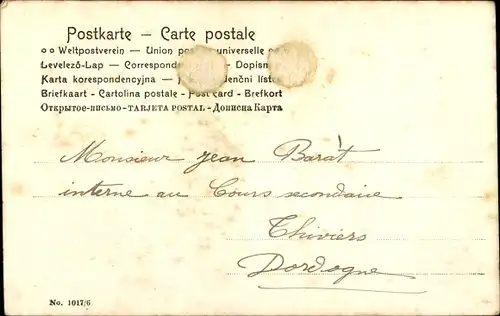 Postkarte — Carte postale
Weltpostverein — Union postale universelle
Levelező-Lap — Correspondenz - Dopisnice
Karta korespondencyjna — Korespondenční lístek
Briefkaart - Cartolina postale - Post card - Brefkort
Открытое-письмо-TARJETA POSTAL-Дописна Карта
Monsieur Jean Barat
interne au Cours secondaire
Thiviers
Dordogne
No. 1017/6